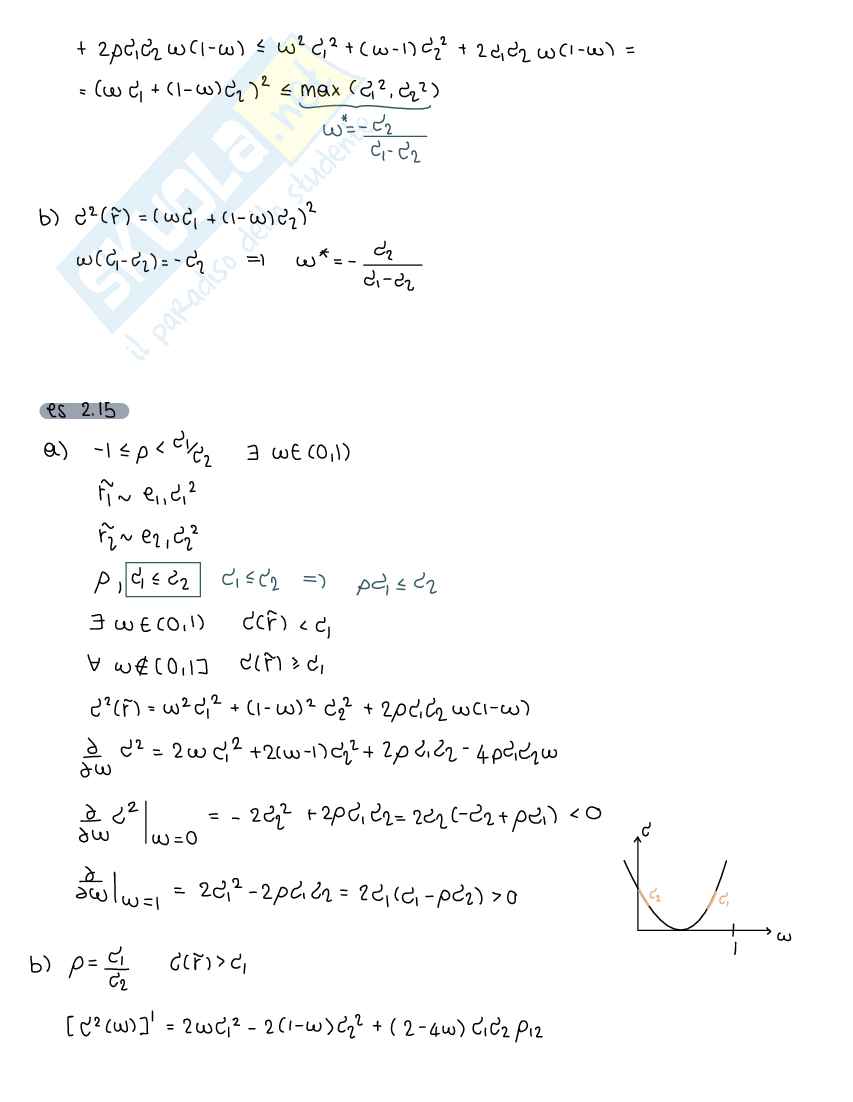 + 2ρσ₁σ₂ ω(1-ω) ≤ ω²σ₁² + (ω-1)σ₂² + 2σ₁σ₂ ω(1-ω) =
= (ωσ₁ + (1-ω)σ₂)² ≤ max (σ₁², σ₂²)
ω* = - σ₂ / σ₁-σ₂
b) σ²(r̃) = (ωσ₁ + (1-ω)σ₂)²
ω(σ₁-σ₂) = -σ₂ ⇒ ω* = - σ₂ / σ₁-σ₂
SKUOLA.net
il paradiso dello studente
es 2.15
a) -1 ≤ ρ < σ₁/σ₂ ∃ ω∈(0,1)
r̃₁ ~ e₁, σ₁²
r̃₂ ~ e₂, σ₂²
ρ, σ₁ ≤ σ₂ σ₁ ≤ σ₂ ⇒ ρσ₁ ≤ σ₂
∃ ω∈(0,1) σ(r̃) < σ₁
∀ ω∉[0,1] σ(r̃) ≥ σ₁
σ²(r̃) = ω²σ₁² + (1-ω)² σ₂² + 2ρσ₁σ₂ ω(1-ω)
∂/∂ω σ² = 2ωσ₁² + 2(ω-1)σ₂² + 2ρσ₁σ₂ - 4ρσ₁σ₂ω
∂/∂ω σ²|ω=0 = - 2σ₂² + 2ρσ₁σ₂ = 2σ₂(-σ₂ + ρσ₁) < 0
∂/∂ω|ω=1 = 2σ₁² - 2ρσ₁σ₂ = 2σ₁(σ₁ - ρσ₂) > 0
σ
σ₂ σ₁
ω
1
b) ρ = σ₁/σ₂ σ(r̃) > σ₁
[σ²(ω)]' = 2ωσ₁² - 2(1-ω)σ₂² + (2-4ω)σ₁σ₂ρ₁₂